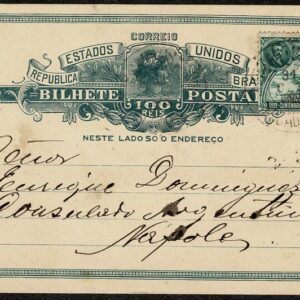 CORREIO
ESTADOS UNIDOS
REPUBLICA BRA
BILHETE POSTA
100
RÉIS
NESTE LADO SÓ O ENDEREÇO
Enrique Dominguez
Consulado Argentin
Napoles